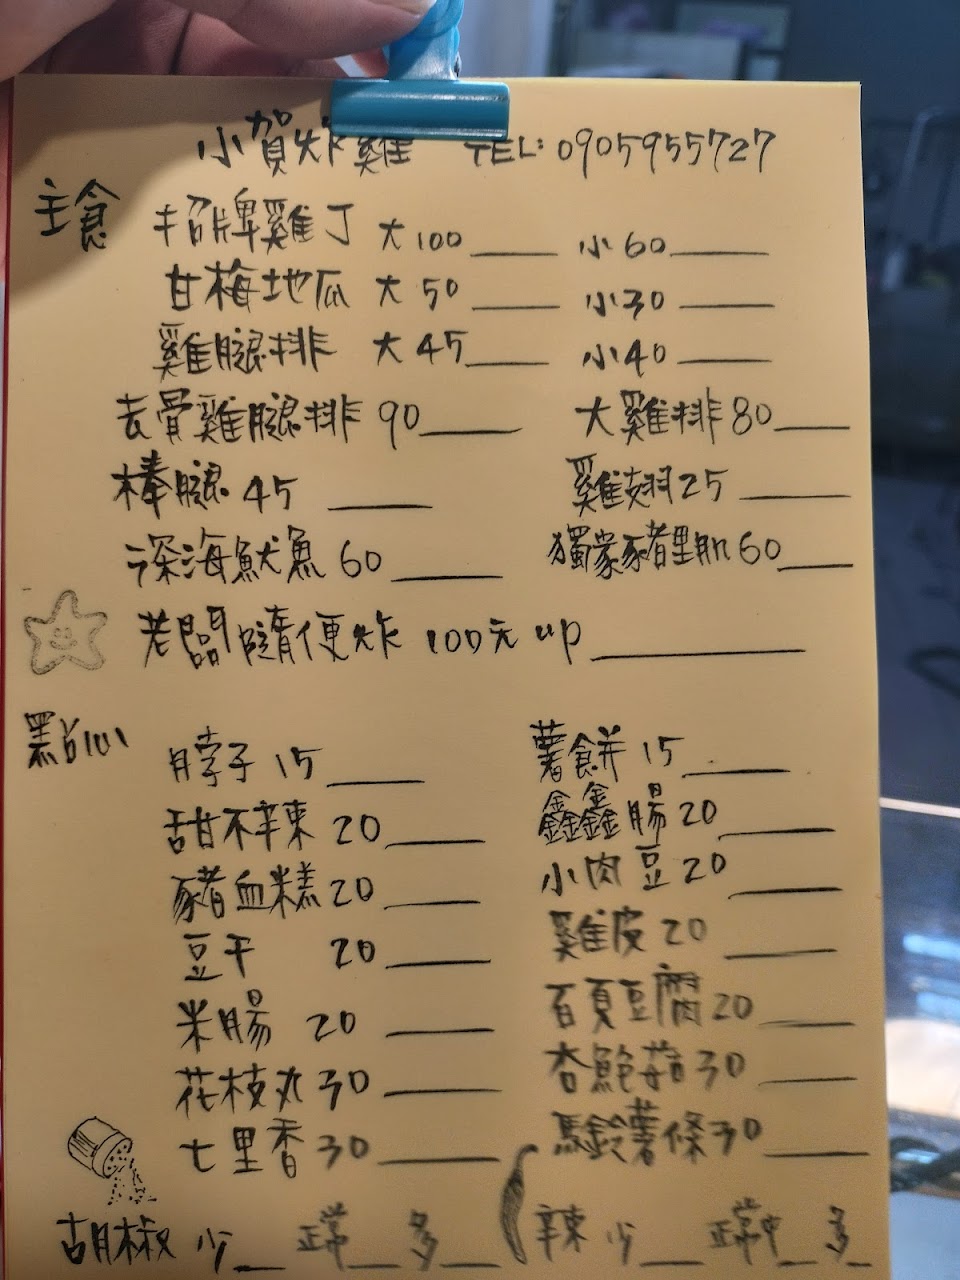 小賀炸雞 TEL: 0905955727
主食 招牌雞丁 大100____ 小60____
甘梅地瓜 大50____ 小30____
雞腿排 大45____ 小40____
去骨雞腿排90____ 大雞排80____
棒腿45____ 雞翅25____
深海魷魚60____ 獨家豬里肌60____
老闆隨便炸 100元up____
點心
脖子15____ 薯餅15____
甜不辣20____ 鑫鑫腸20____
豬血糕20____ 小肉豆20____
豆干20____ 雞皮20____
米腸20____ 百頁豆腐20____
花枝丸30____ 杏鮑菇30____
七里香30____ 馬鈴薯條30____
胡椒 少__ 正常__ 多__ 辣 少__ 正常__ 多__